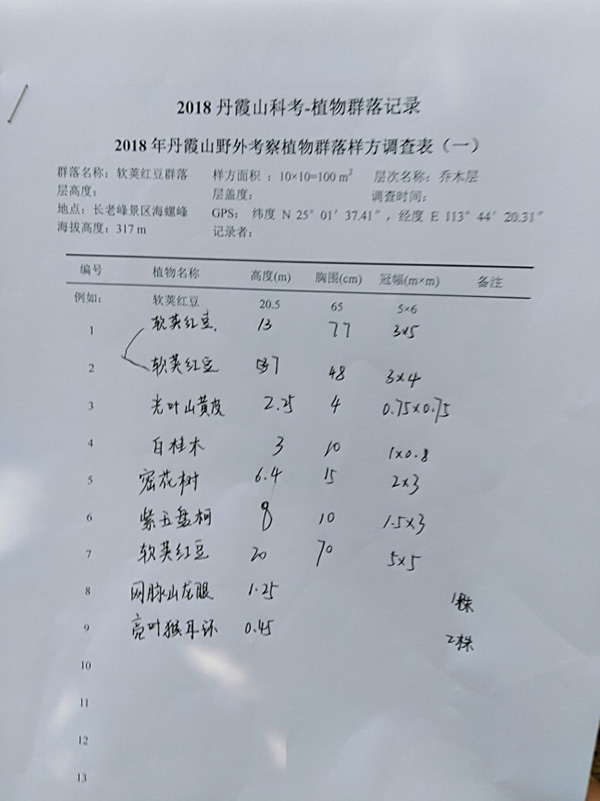 2018丹霞山科考-植物群落记录
2018年丹霞山野外考察植物群落样方调查表（一）
群落名称：软荚红豆群落 样方面积：10×10=100 m² 层次名称：乔木层
层高度： 层盖度： 调查时间：
地点：长老峰景区海螺峰 GPS： 纬度 N 25°01′37.41″，经度 E 113°44′20.31″
海拔高度：317 m 记录者：
编号 植物名称 高度(m) 胸围(cm) 冠幅(m×m) 备注
例如： 软荚红豆 20.5 65 5×6
1 软荚红豆. 13 77 3×5
2 软荚红豆 48 3×4
3 光叶山黄皮 2.25 4 0.75×0.75
4 白桂木 3 10 1×0.8
5 密花树 6.4 15 2×3
6 紫玉盘柯 8 10 1.5×3
7 软荚红豆 20 70 5×5
8 网脉山龙眼 1.25 1株
9 亮叶猴耳环 0.45 2株
10
11
12
13